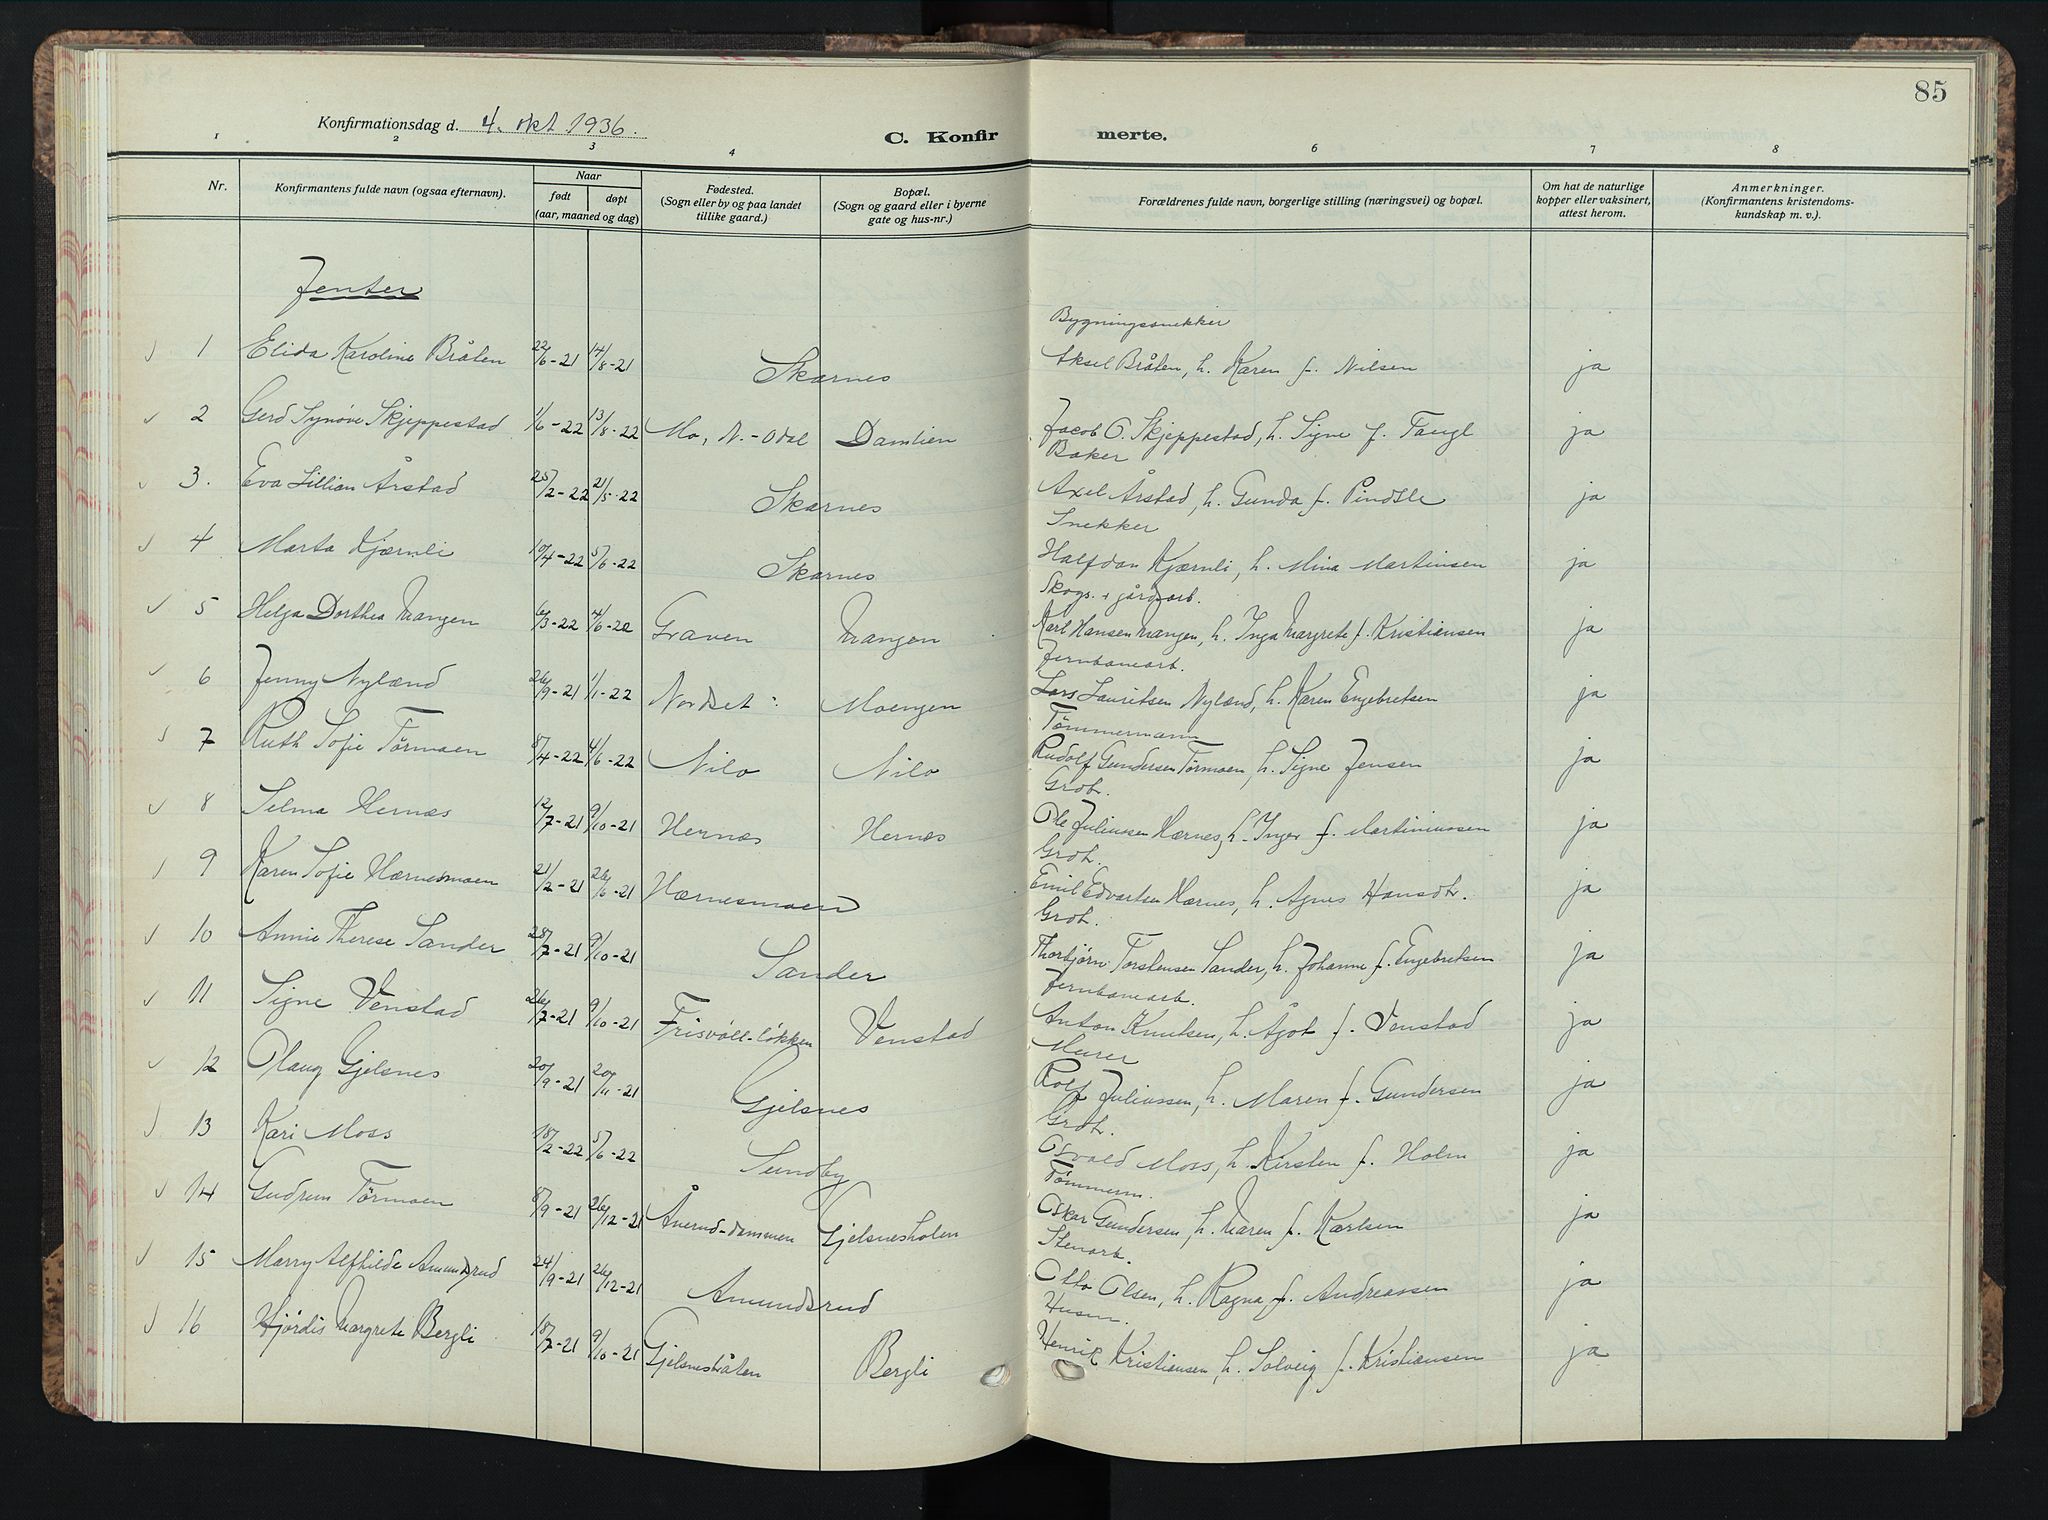 85
Konfirmationsdag d. 4. okt 1936.
C. Konfirmerte.
1 2 3 4 6 7 8
Nr. Konfirmantens fulde navn (ogsaa efternavn). Naar født døpt (aar, maaned og dag) Fødested. (Sogn eller by og paa landet tillike gaard.) Bopæl. (Sogn og gaard eller i byerne gate og hus-nr.) Forældrenes fulde navn, borgerlige stilling (næringsvei) og bopæl. Om hat de naturlige kopper eller vaksinert, attest herom. Anmerkninger. (Konfirmantens kristendomskundskap m. v.).
Jenter
Bygningssnekker
1 Elida Karoline Bråten 22/6-21 14/8-21 Skarnes Aksel Bråten, h. Karen f. Nilsen ja
2 Gerd Synøve Skjeppestad 1/6-22 13/8-22 Mo, N.-Odal Damlien Jacob O. Skjeppestad, h. Signe f. Taugl ja
Baker
3. Eva Lillian Årstad 25/2-22 21/5-22 Skarnes Axel Årstad, h. Gunda f. Pindsle ja
Snekker
4 Marta Kjærnli 10/4-22 5/6-22 Skarnes Halfdan Kjærnli, h. Mina Martinsen ja
Skogs. + gårdsarb.
5 Helga Dorthea Mangen 6/3-22 4/6-22 Graven Mangen Karl Hansen Mangen, h. Inga Margrete f. Kristiansen ja
Jernbanearb.
6 Jenny Nyland 26/9-21 1/1-22 Nordset Moengen Lars Lauritsen Nyland, h. Karen Engebretsen ja
Tømmermann
7 Ruth Sofie Tørmoen 8/4-22 4/6-22 Nilo Nilo Rudolf Gundersen Tørmoen, h. Signe Jensen ja
Grbr.
8 Selma Hernæs 12/7-21 9/10-21 Hernæs Hernæs Ole Juliussen Hernes, h. Inger f. Martiniussen ja
Grbr.
9 Karen Sofie Hærnesmoen 21/2-21 26/6-21 Hærnesmoen Emil Edvartsen Hærnes, h. Agnes Hansdtr. ja
Grbr.
10 Annie Therese Sander 28/7-21 9/10-21 Sander Thorbjørn Torstensen Sander, h. Johanne f. Engebretsen ja
Jernbanearb.
11 Signe Venstad 26/7-21 9/10-21 Frisvoll-løkken Venstad Anton Knutsen, h. Ågot f. Venstad ja
Murer
12 Olaug Gjelsnes 20/9-21 20/11-21 Gjelsnes Rolf Juliussen, h. Maren f. Gundersen ja
Grbr.
13 Kari Moss 18/2-22 5/6-22 Sundby Osvald Moss, h. Kirsten f. Holm ja
Tømmerm.
14 Gudrun Tørmoen 8/9-21 26/12-21 Ånerud-dammen Gjelsnesholen Oskar Gundersen, h. Maren f. Karlsen ja
Stenarb.
15 Marry Alfhilde Amundsrud 24/9-21 26/12-21 Amundsrud Otto Olsen, h. Ragna f. Andreassen ja
Husm.
16 Hjørdis Margrete Bergli 18/7-21 9/10-21 Gjelsnesbråten Bergli Henrik Kristiansen, h. Solveig f. Kristiansen ja